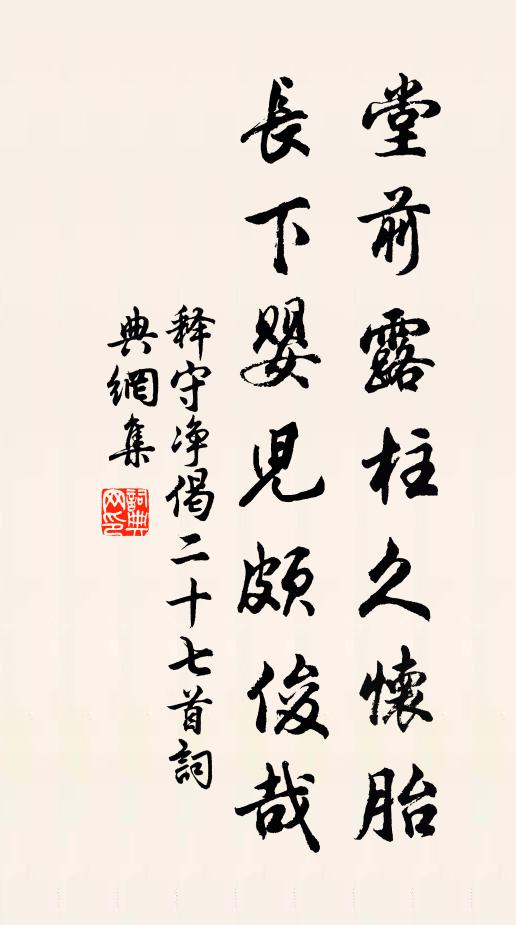 堂前露柱久懷胎
長下嬰兒頗俊哉
释守净偈二十七首詞
典網集
詞典网印